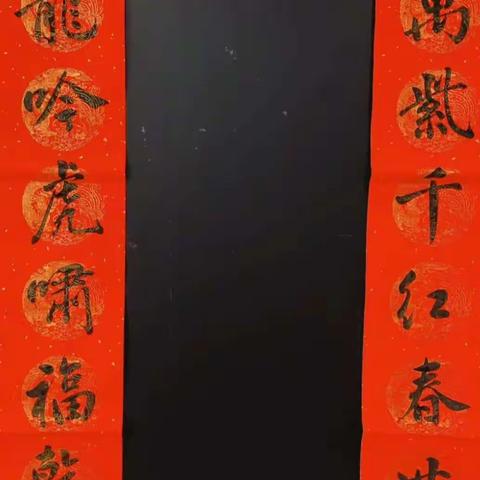 萬紫千红春世
龍吟虎嘯福乾